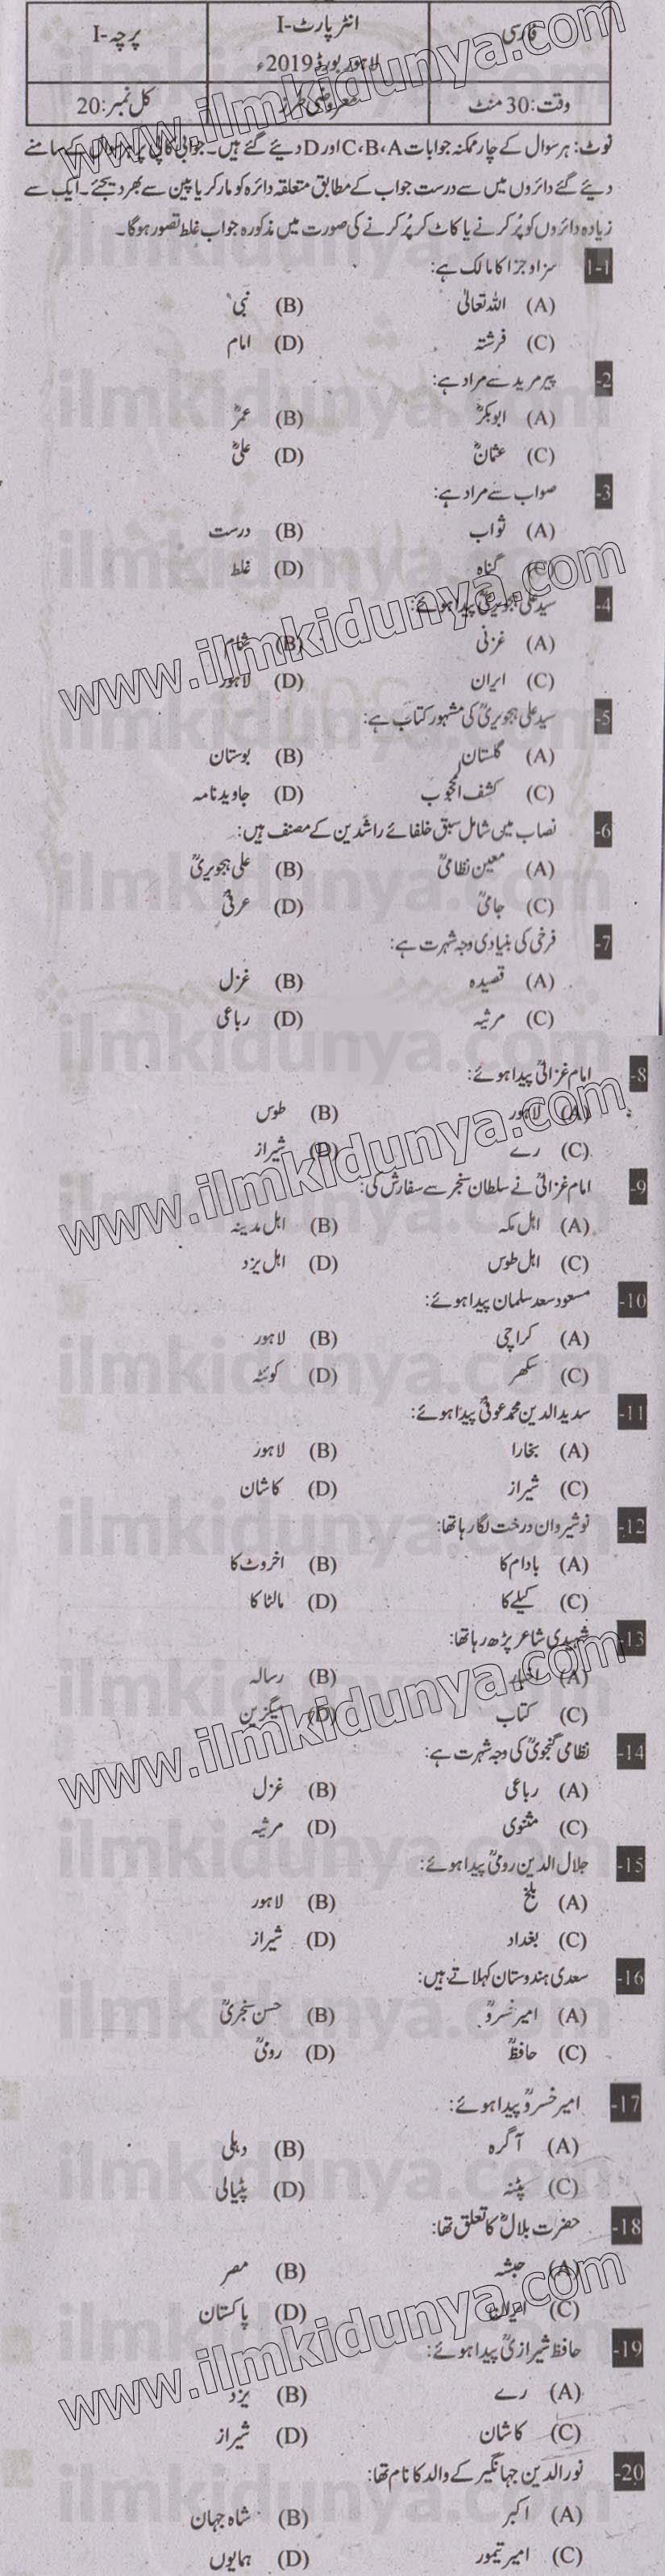 فارسی
انٹر پارٹ-I
لاہور بورڈ 2019ء
پرچہ-I
وقت: 30 منٹ
معروضی طرز
کل نمبر: 20
نوٹ: ہر سوال کے چار ممکنہ جوابات A، B، C اور D دیئے گئے ہیں۔ جوابی کاپی پر ہر سوال کے سامنے
دیئے گئے دائروں میں سے درست جواب کے مطابق متعلقہ دائرہ کو مارکر یا پین سے بھر دیجئے۔ ایک سے
زیادہ دائروں کو پُر کرنے یا کاٹ کر پُر کرنے کی صورت میں مذکورہ جواب غلط تصور ہوگا۔
1-1 سزا و جزا کا مالک ہے:
(A) اللہ تعالیٰ (B) نبی
(C) فرشتہ (D) امام
2- پیر مرید سے مراد ہے:
(A) ابوبکرؓ (B) عمرؓ
(C) عثمانؓ (D) علیؓ
3- صواب سے مراد ہے:
(A) ثواب (B) درست
(C) گناہ (D) غلط
4- سید علی ہجویریؒ پیدا ہوئے:
(A) غزنی (B) شام
(C) ایران (D) لاہور
5- سید علی ہجویریؒ کی مشہور کتاب ہے:
(A) گلستان (B) بوستان
(C) کشف المحجوب (D) جاوید نامہ
6- نصاب میں شامل سبق خلفائے راشدین کے مصنف ہیں:
(A) معین نظامیؒ (B) علی ہجویریؒ
(C) جامیؒ (D) عرفیؒ
7- فرخی کی بنیادی وجہ شہرت ہے:
(A) قصیدہ (B) غزل
(C) مرثیہ (D) رباعی
8- امام غزالیؒ پیدا ہوئے:
(A) لاہور (B) طوس
(C) رے (D) شیراز
9- امام غزالیؒ نے سلطان سنجر سے سفارش کی:
(A) اہل مکہ (B) اہل مدینہ
(C) اہل طوس (D) اہل یزد
10- مسعود سعد سلمان پیدا ہوئے:
(A) کراچی (B) لاہور
(C) سکھر (D) کوئٹہ
11- سدید الدین محمد عوفیؒ پیدا ہوئے:
(A) بخارا (B) لاہور
(C) شیراز (D) کاشان
12- نوشیروان درخت لگا رہا تھا:
(A) بادام کا (B) اخروٹ کا
(C) کیلے کا (D) مالٹا کا
13- شہیدی شاعر پڑھ رہا تھا:
(A) اخبار (B) رسالہ
(C) کتاب (D) میگزین
14- نظامی گنجویؒ کی وجہ شہرت ہے:
(A) رباعی (B) غزل
(C) مثنوی (D) مرثیہ
15- جلال الدین رومیؒ پیدا ہوئے:
(A) بلخ (B) لاہور
(C) بغداد (D) شیراز
16- سعدی ہندوستان کہلاتے ہیں:
(A) امیر خسروؒ (B) حسن سنجریؒ
(C) حافظؒ (D) رومیؒ
17- امیر خسروؒ پیدا ہوئے:
(A) آگرہ (B) دہلی
(C) پٹنہ (D) پٹیالی
18- حضرت بلالؓ کا تعلق تھا:
(A) حبشہ (B) مصر
(C) ایران (D) پاکستان
19- حافظ شیرازیؒ پیدا ہوئے:
(A) رے (B) یزد
(C) کاشان (D) شیراز
20- نورالدین جہانگیر کے والد کا نام تھا:
(A) اکبر (B) شاہ جہان
(C) امیر تیمور (D) ہمایوں
www.ilmkidunya.com